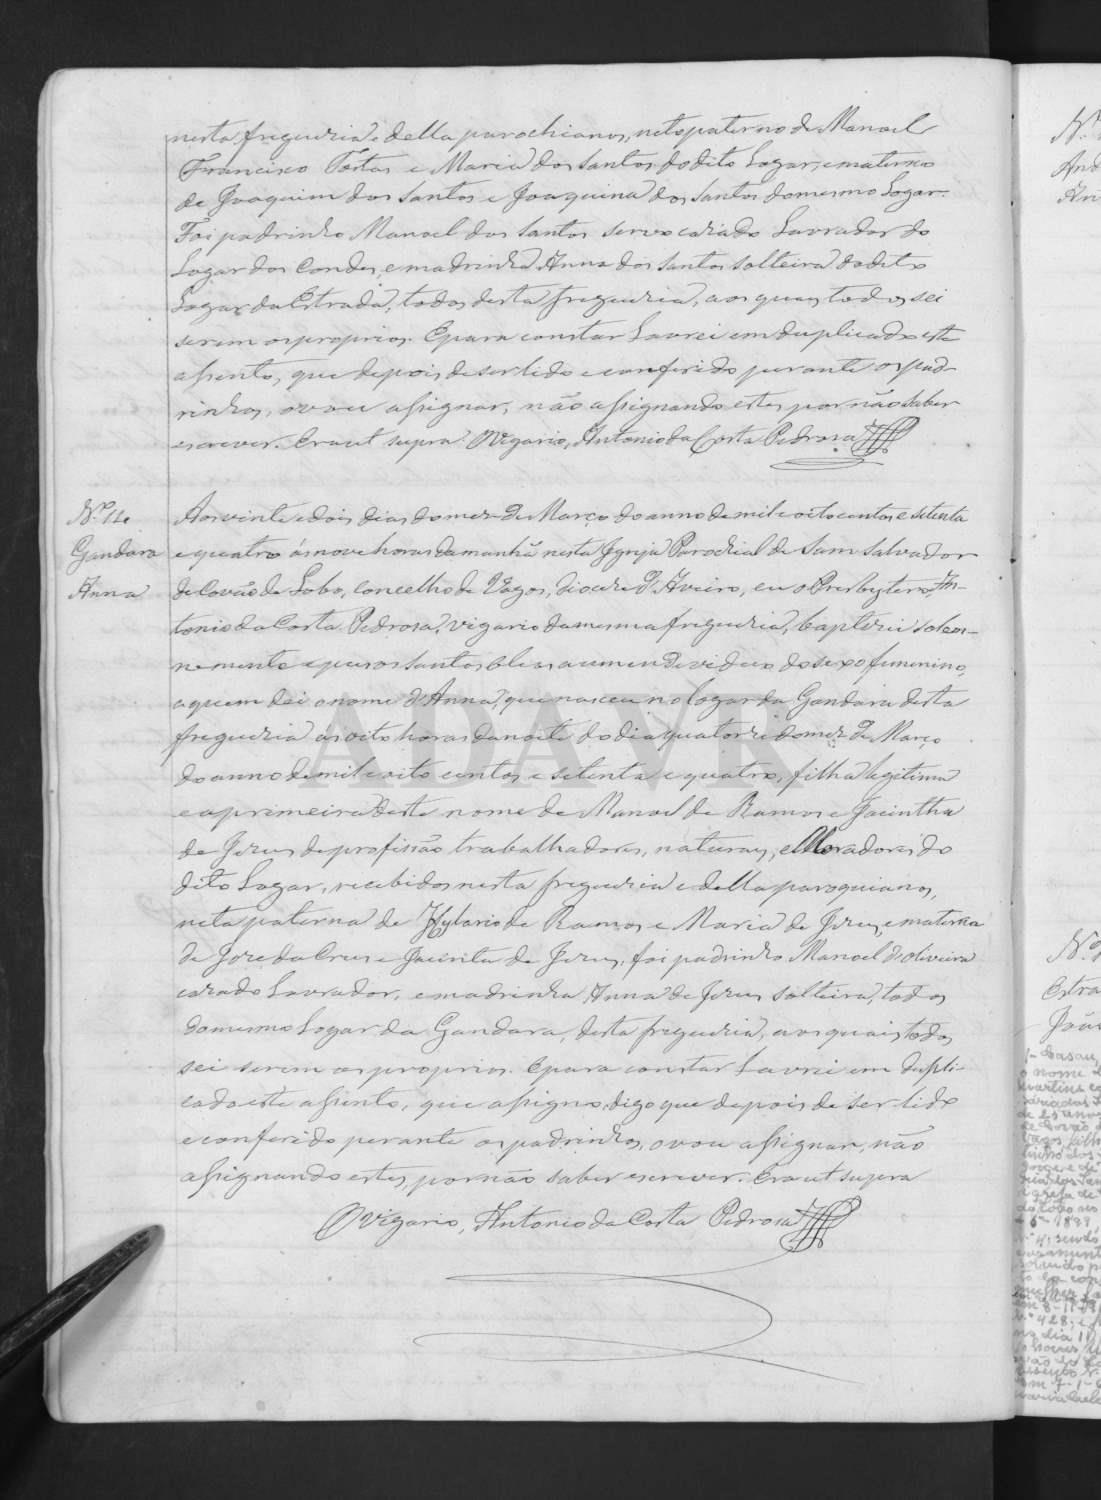 nesta freguezia e della parochianos, neto paterno de Manoel
Francisco Tortas e Maria dos Santos do dito Logar, e materno
de Joaquim dos Santos e Joaquina dos Santos do mesmo Logar.
Foi padrinho Manoel dos Santos servo casado Lavrador do
Logar dos Condes, e madrinha Anna dos Santos solteira do dito
Logar da Estrada, todos desta freguezia, aos quaes todos sei
serem os proprios. E para constar Lavrei em duplicado este
assento, que depois de ser lido e conferido perante os pad-
rinhos, o vou assignar, não assignando estes por não saber
escrever. Era ut supra. O Vigario, Antonio da Costa Pedrosa
Nº 11
Gandara
Anna
Aos vinte e dois dias do mez de Março do anno de mil e oito centos e setenta
e quatro ás nove horas da manhã nesta Igreja Parochial de Sam Salvador
de Covão de Lobo, concelho de Vagos, Diocese d'Aveiro, eu o Presbytero An-
tonio da Costa Pedrosa, vigario da mesma freguezia, baptizei solem-
nemente e puz os Santos Oleos a um individuo do sexo femenino,
a quem dei o nome d'Anna, que nasceu no logar da Gandara desta
freguezia ás oito horas da noite do dia quatorze do mez de Março
do anno de mil e oito centos e setenta e quatro, filha legitima
e a primeira deste nome de Manoel de Ramos e Jacintha
de Jezus de profissão trabalhadores, naturaes, e Moradores do
dito Logar, recebidos nesta freguezia e della paroquianos,
neta paterna de Hylario de Ramos e Maria de Jezus, e materna
de Joze da Cruz e Jacinta de Jezus, foi padrinho Manoel d'Oliveira
cazado Lavrador, e madrinha Anna de Jezus solteira, todos
do mesmo Logar da Gandara, desta freguezia, aos quais todos
sei serem os proprios. E para constar Lavrei em dupli-
cado este assento, que assigno, digo que depois de ser lido
e conferido perante os padrinhos, o vou assignar, não
assignando estes, por não saber escrever. Era ut supra
O Vigario, Antonio da Costa Pedrosa
ADAVR